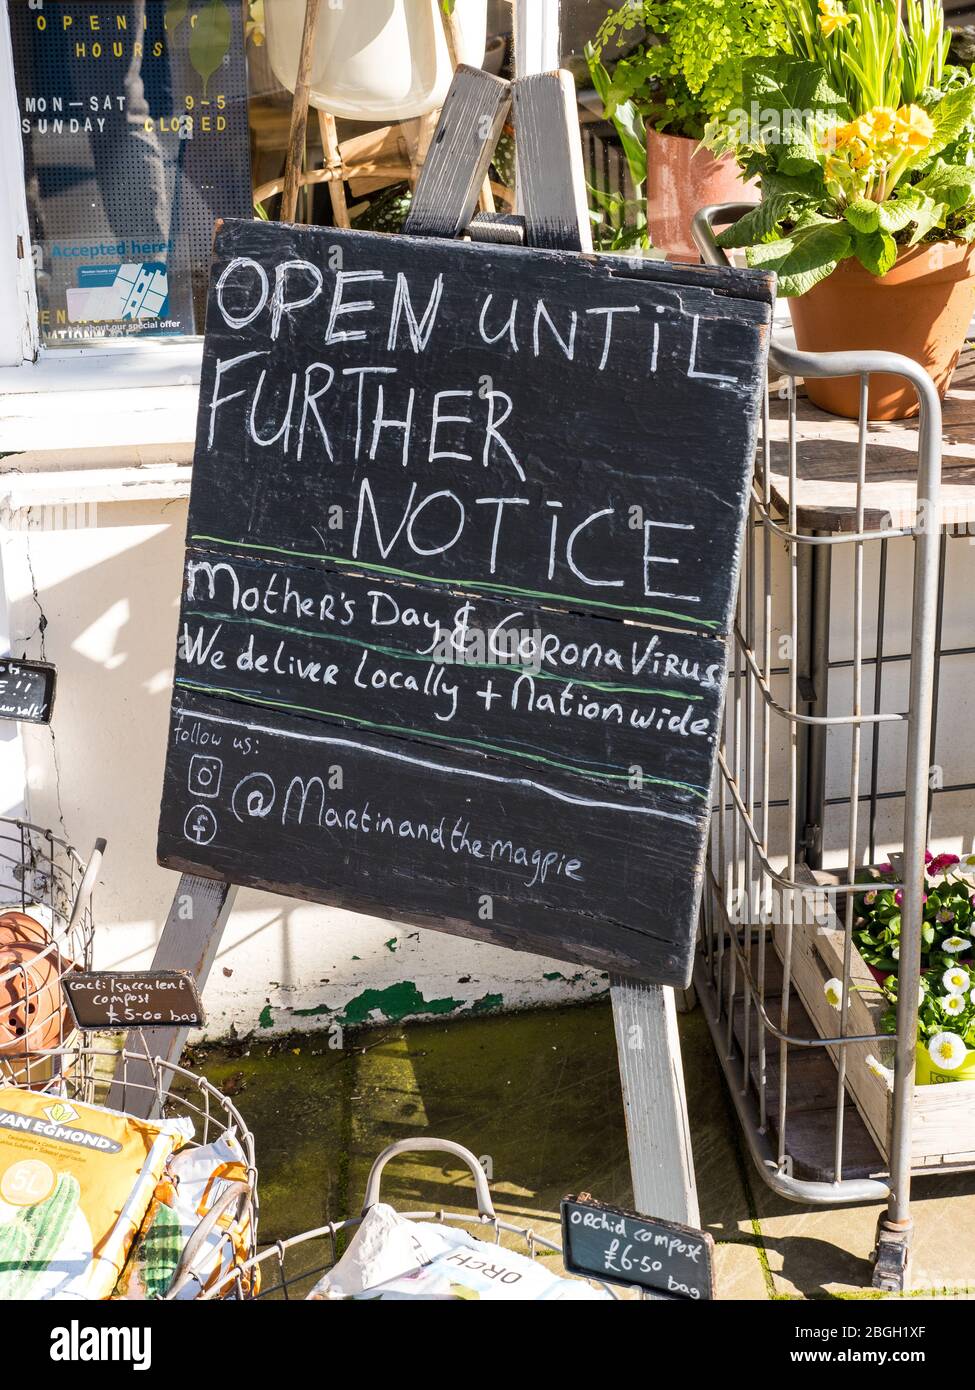 OPENING
HOURS
MON–SAT 9-5
SUNDAY CLOSED
Accepted here!
about our special offer
OPEN UNTiL
FURTHER
NOTiCE
Mother's Day & CORONA ViRUS
We deliver Locally + Nationwide.
follow us:
@Martinandthemagpie
cacti/succulent
compost
£5-00 bag
VAN EGMOND
5L
ORCH
ORCHID compost
£6-50
bag
alamy
Image ID: 2BGH1XF
www.alamy.com